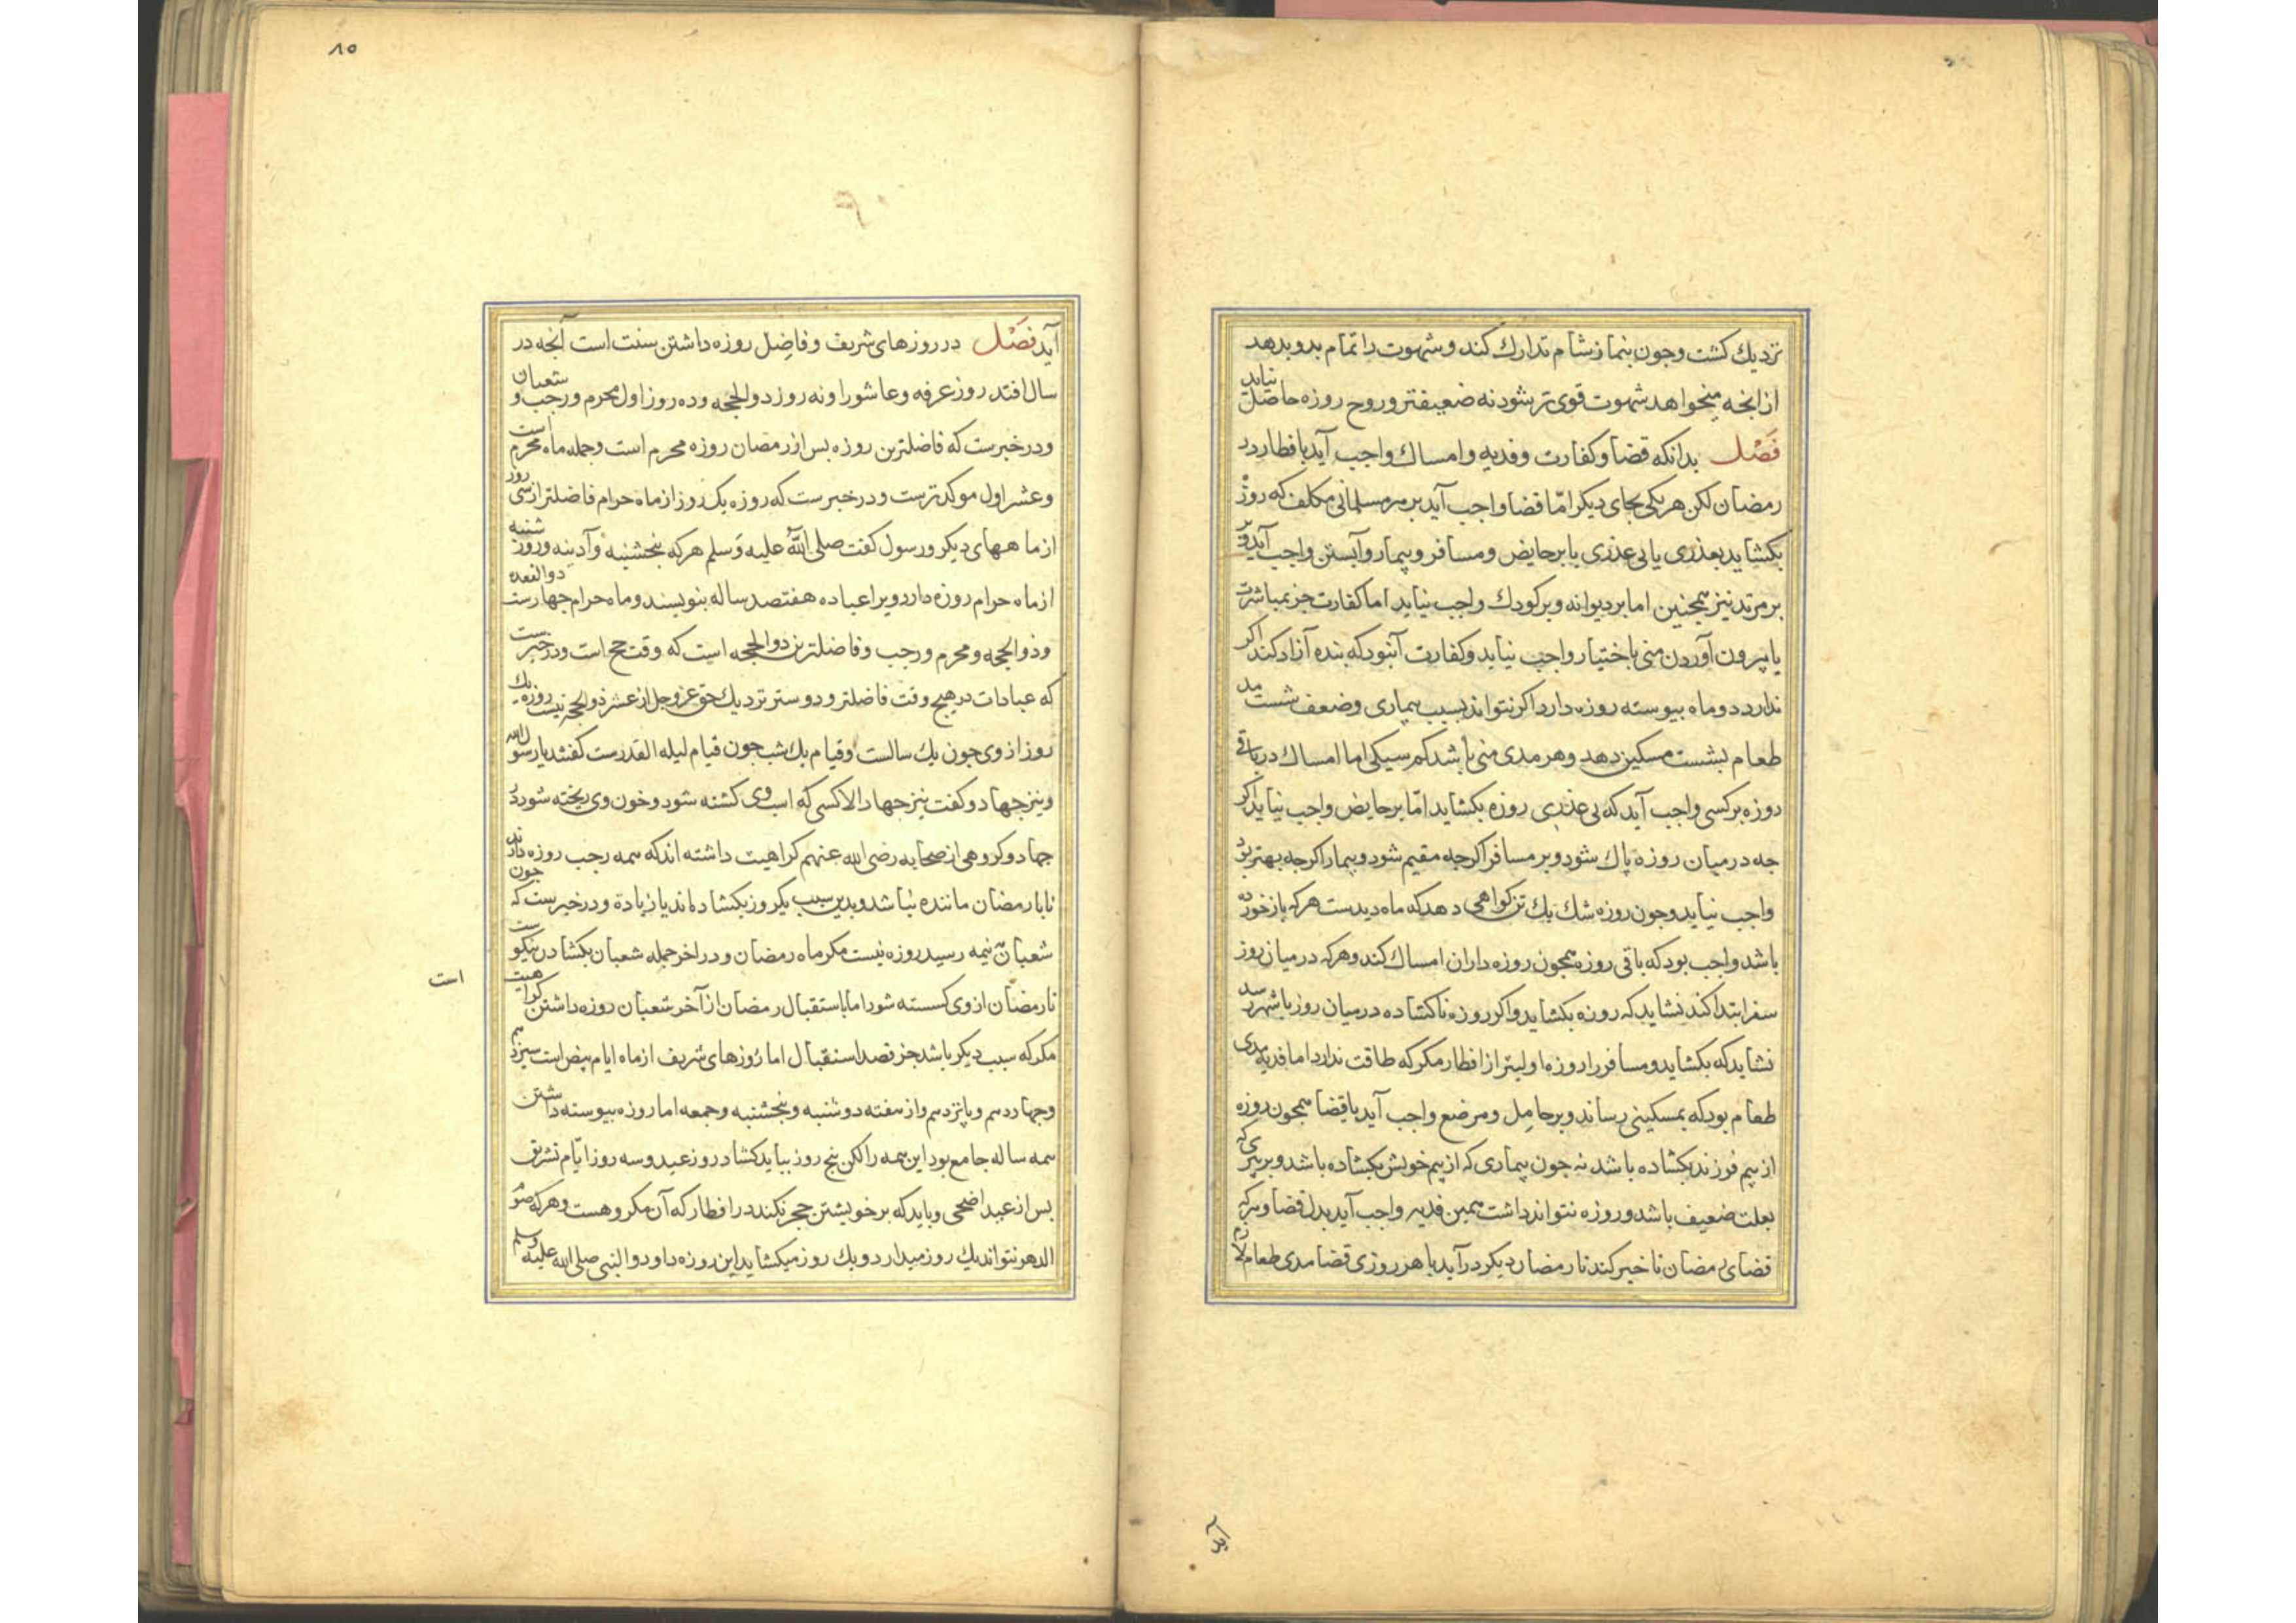 نزدیك كشت وجون بنماز شام تدارك كند وشهوت را تمام بدو بدهد
از انجه میخواهد شهوت قوی تر شود نه ضعیفتر وروح روزه حاصل نیاید
فَصْل بدانکه قضا وکفارت وفدیه وامساك واجب آید بافطار در
رمضان لکن هر یکی بجای دیکر امّا قضا واجب آید بر هر مسلمانی مکلف که روزه
بکشاید بعذری یا بی عذری یا بر حایض ومسافر وبیمار وآبستن واجب آید وبر
بر مرتد نیز همجنین اما بر دیوانه وبر کودك واجب نیاید اما کفارت جز بمباشرت
یا بیرون آوردن منی باختیار واجب نیاید وکفارت آنبود که بنده آزاد کند اکر
ندارد دوماه بیوسته روزه دارد اکر نتواند بسبب بیماری وضعف شست مد
طعام بشست مسکین دهد وهر مدی منی باشد کم سیکی اما امساك در باقی
روزه بر کسی واجب آید که بی عذری روزه بکشاید امّا بر حایض واجب نیاید اکر
جه درمیان روزه پاك شود وبر مسافر اکرجه مقیم شود وبیمار اکرجه بهتر بود
واجب نیاید وجون روزه شك یك تن کواهی دهد که ماه دیدست هرکه باز خورده
باشد واجب بود که باقی روزه همجون روزه داران امساك کند وهرکه درمیان روز
سفر ابتدا کند نشاید که روزه بکشاید واکر روزه ناکشاده درمیان روز باشهر رسد
نشاید که بکشاید ومسافر را روزه اولیتر از افطار مکر که طاقت ندارد اما فدیه مدی
طعام بود که بمسکینی رساند وبر حامِل ومرضع واجب آید با قضا همجون روزه
از بیم فرزند بکشاده باشد نه جون بیماری که از بیم خویش بکشاده باشد وبر پیری که
بعلت ضعیف باشد وروزه نتواند داشت همین فدیه واجب آید بدل قضا وهرکه
قضای رمضان تاخیر کند تا رمضان دیکر در آید با هر روزی قضا مدی طعام لازم
۸۵
آید فصَْل در روزهای شریف وفاضِل روزه داشتن سنت است آنجه در
سال افتد روز عرفه وعاشورا ونه روز ذوالحجه وده روز اول محرم ورجب و شعبان
ودر خبرست که فاضلترین روزه بس از رمضان روزه محرم است وجمله ماه محرم است
وعشر اول موکدترست ودر خبرست که روزه یک روز از ماه حرام فاضلتر از سی روز
از ماههای دیکر ورسول کفت صلی اللّٰه علیه وَسلم هرکه بنجشنبه وآدینه وروز شنبه
از ماه حرام روزه دارد ویرا عباده هفتصد ساله بنویسند وماه حرام جهارست ذوالقعده
وذوالحجه ومحرم ورجب وفاضلترین ذوالحجه است که وقت حج است ودر خبرست
که عبادات در هیج وقت فاضلتر ودوستر نزدیك حق عز وجل از عشر ذوالحجه نیست روزه یك
روز از وی جون یك سالست وقیام یك شب جون قیام لیله القدرست کفتند یا رسول الله
ونیز جهاد وکفت نیز جهاد الا کسی که اسب وی کشته شود وخون وی ریخته شود در
جهاد وکروهی از صحابه رضی الله عنهم کراهیت داشته اند که همه رجب روزه دارند
تا با رمضان ماننده نباشد وبدین سبب یکروز بکشاده اند یا زیادة ودر خبرست که جون
شعبان بنیمه رسید روزه نیست مکر ماه رمضان ودر اخر جمله شعبان بکشادن نیکوست
تا رمضان از وی کسسته شود اما باستقبال رمضان از آخر شعبان روزه داشتن کراهیت
است
مکر که سبب دیکر باشد جز قصد استقبال اما روزهای شریف از ماه ایام بیض است سیزدهم
وجهاردهم وپانزدهم واز هفته دوشنبه وبنجشنبه وجمعه اما روزه بیوسته داشتن
همه ساله جامع بود این همه را لکن بنج روز بباید کشاد روز عید وسه روز ایّام تشریق
بس از عید اضحی وباید که بر خویشتن حجر نکند در افطار که آن مکروهست وهرکه صوم
الدهر نتواند یك روز میدارد ویك روز میکشاید این روزه داودوالنبی صلی الله علیه وسلم